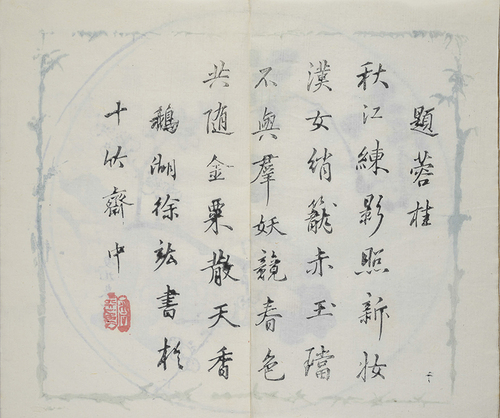 題蓉桂
秋江練影照新妝
漢女綃籠赤玉璫
不與羣妖競春色
共随金粟散天香
鵝湖徐𥩟書於
十竹齋中